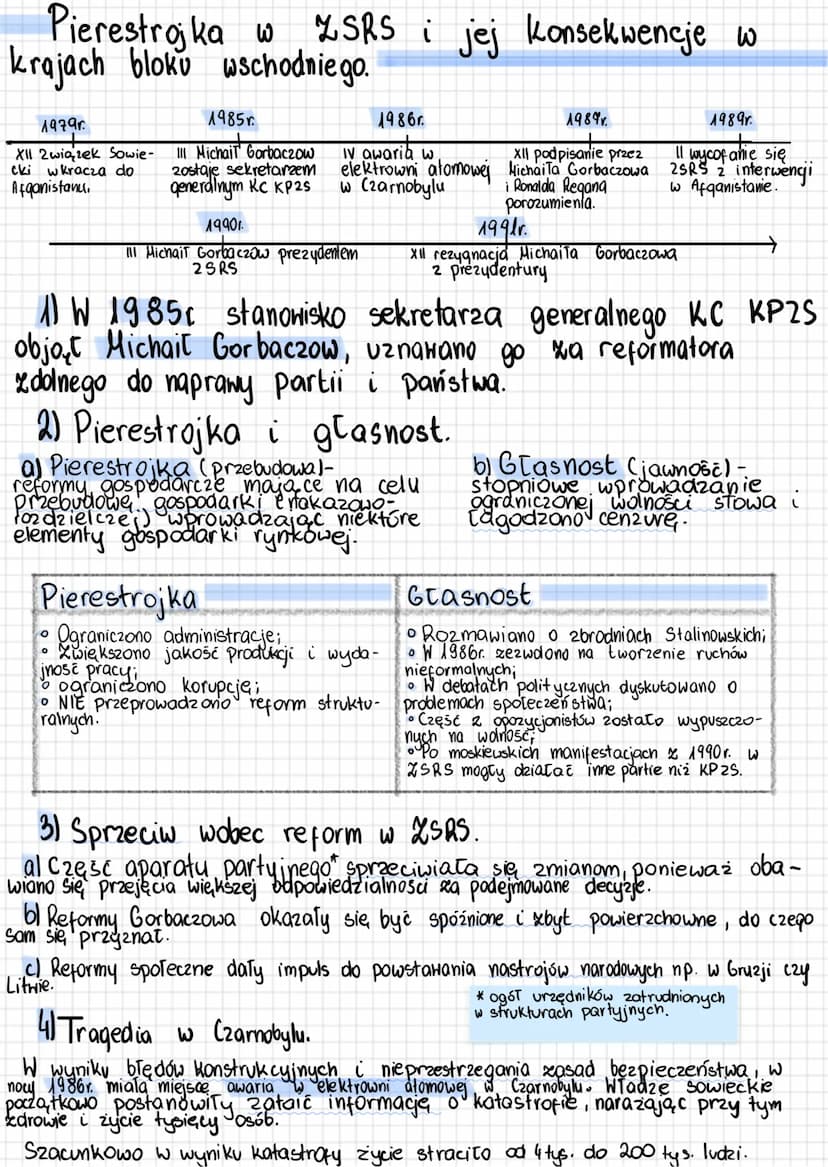 Pierestrojka w ZSRS i jej konsekwencje w
krajach bloku wschodniego.
1979r.
1985r.
1986r.
1987r.
1989r.
XII Związek Sowie-
cki wkracza do
Afganistanu.
III Michaił Gorbaczow
zostaje sekretarzem
generalnym KC KPZS
IV awaria w
elektrowni atomowej
w Czarnobylu
XII podpisanie przez
Michaiła Gorbaczowa
i Ronalda Regana
porozumienia.
II wycofanie się
ZSRS z interwencji
w Afganistanie.
1990r.
1991r.
III Michaił Gorbaczow prezydentem
ZSRS
XII rezygnacja Michaiła Gorbaczowa
z prezydentury
1) W 1985r stanowisko sekretarza generalnego KC KPZS
objął Michaił Gorbaczow, uznawano go za reformatora
zdolnego do naprawy partii i państwa.
2) Pierestrojka i głasnost.
a) Pierestrojka (przebudowa)-
reformy gospodarcze mające na celu
przebudowę gospodarki (nakazowo-
rozdzielczej) wprowadzając niektóre
elementy gospodarki rynkowej.
b) Głasnost (jawność) -
stopniowe wprowadzanie
ograniczonej wolności słowa i
łagodzono cenzurę.
Pierestrojka
• Ograniczono administrację;
• Zwiększono jakość produkcji i wyda-
jność pracy;
• ograniczono korupcję;
• NIE przeprowadzono reform struktu-
ralnych.
Głasnost
• Rozmawiano o zbrodniach Stalinowskich;
• W 1986r. zezwolono na tworzenie ruchów
nieformalnych;
• W debatach politycznych dyskutowano o
problemach społeczeństwa;
• Część z opozycjonistów zostało wypuszczo-
nych na wolność;
• Po moskiewskich manifestacjach z 1990r. w
ZSRS mogły działać inne partie niż KPZS.
3) Sprzeciw wobec reform w ZSRS.
a) Część aparatu partyjnego* sprzeciwiała się zmianom, ponieważ oba-
wiano się przejęcia większej odpowiedzialności za podejmowane decyzje.
b) Reformy Gorbaczowa okazały się być spóźnione i zbyt powierzchowne, do czego
sam się przyznał.
c) Reformy społeczne dały impuls do powstawania nastrojów narodowych np. w Gruzji czy
Litwie.
* ogół urzędników zatrudnionych
w strukturach partyjnych.
4) Tragedia w Czarnobylu.
W wyniku błędów konstrukcyjnych i nieprzestrzegania zasad bezpieczeństwa, w
nocy 1986r. miała miejsce awaria w elektrowni atomowej w Czarnobylu. Władze sowieckie
początkowo postanowiły zataić informację o katastrofie, narażając przy tym
zdrowie i życie tysięcy osób.
Szacunkowo w wyniku katastrofy życie straciło od 4 tyś. do 200 tys. ludzi.